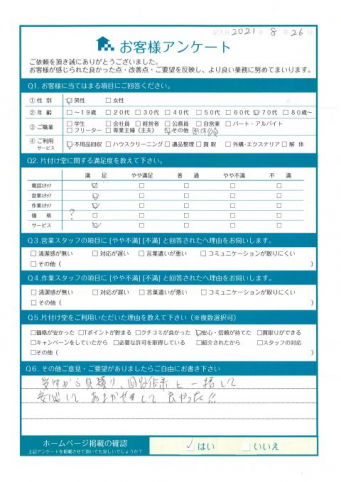 2021 8 26
お客様アンケート
ご依頼を頂き誠にありがとうございました。
お客様が感じられた良かった点・改善点・ご要望を反映し、より良い業務に努めてまいります。
Q1. お客様に当てはまる項目にご回答ください。
① 性 別 ☑男性 □女性
② 年 齢 □～19歳 □20代 □30代 □40代 □50代 □60代 ☑70代 □80歳～
③ ご職業 □学生 □会社員 □経営者 □公務員 □自営業 □パート・アルバイト
□フリーター □専業主婦（主夫） ☑その他
④ ご利用サービス ☑不用品回収 □ハウスクリーニング □遺品整理 □買取 □外構・エクステリア □解体
Q2. 片付け堂に関する満足度を教えて下さい。
満 足 やや満足 普 通 やや不満 不 満
電話対応 ☑ □ □ □ □
営業対応 ☑ □ □ □ □
作業対応 ☑ □ □ □ □
価 格 ? □ □ □ □ □
サービス ☑ □ □ □ □
Q3. 営業スタッフの項目に [やや不満] [不満] と回答された方へ理由をお伺いします。
□清潔感が無い □対応が遅い □言葉遣いが悪い □コミュニケーションが取りにくい
□その他 ( )
Q4. 作業スタッフの項目に [やや不満] [不満] と回答された方へ理由をお伺いします。
□清潔感が無い □対応が遅い □言葉遣いが悪い □コミュニケーションが取りにくい
□その他 ( )
Q5. 片付け堂をご利用いただいた理由を教えて下さい（※複数選択可）
□価格が安かった □Tポイントが貯まる □クチコミが良かった ☑安心・信頼が持てた □買取りができる
□キャンペーンをしていたから □必要な許可を取得している □紹介されたから □スタッフの対応
□その他( )
Q6. その他ご意見・ご要望がありましたらご自由にお書き下さい
受付から見積り、回収作業と一括して
安心して おまかせして 良かった!!
ホームページ掲載の確認
上記アンケートを掲載させて頂いても宜しいでしょうか？
☑はい □いいえ